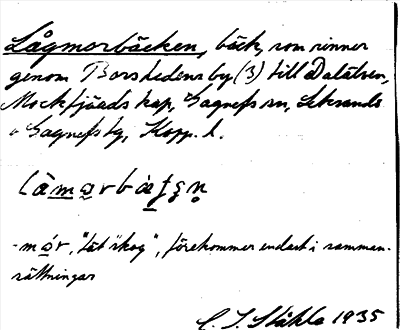 Lågmorbäcken, bäck, som rinner
genom Borshedens by (3) till Dalälven,
Mockfjärds kap, Gagnefs sn, Leksands
o Gagnefs tg, Kopp. l.
-mor, "tät skog", förekommer endast i samman-
sättningar
1935